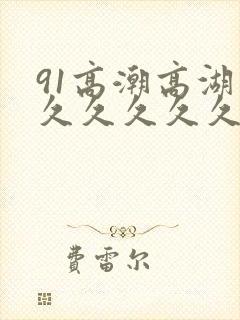 91高潮高湖
久久久久久
费雷尔